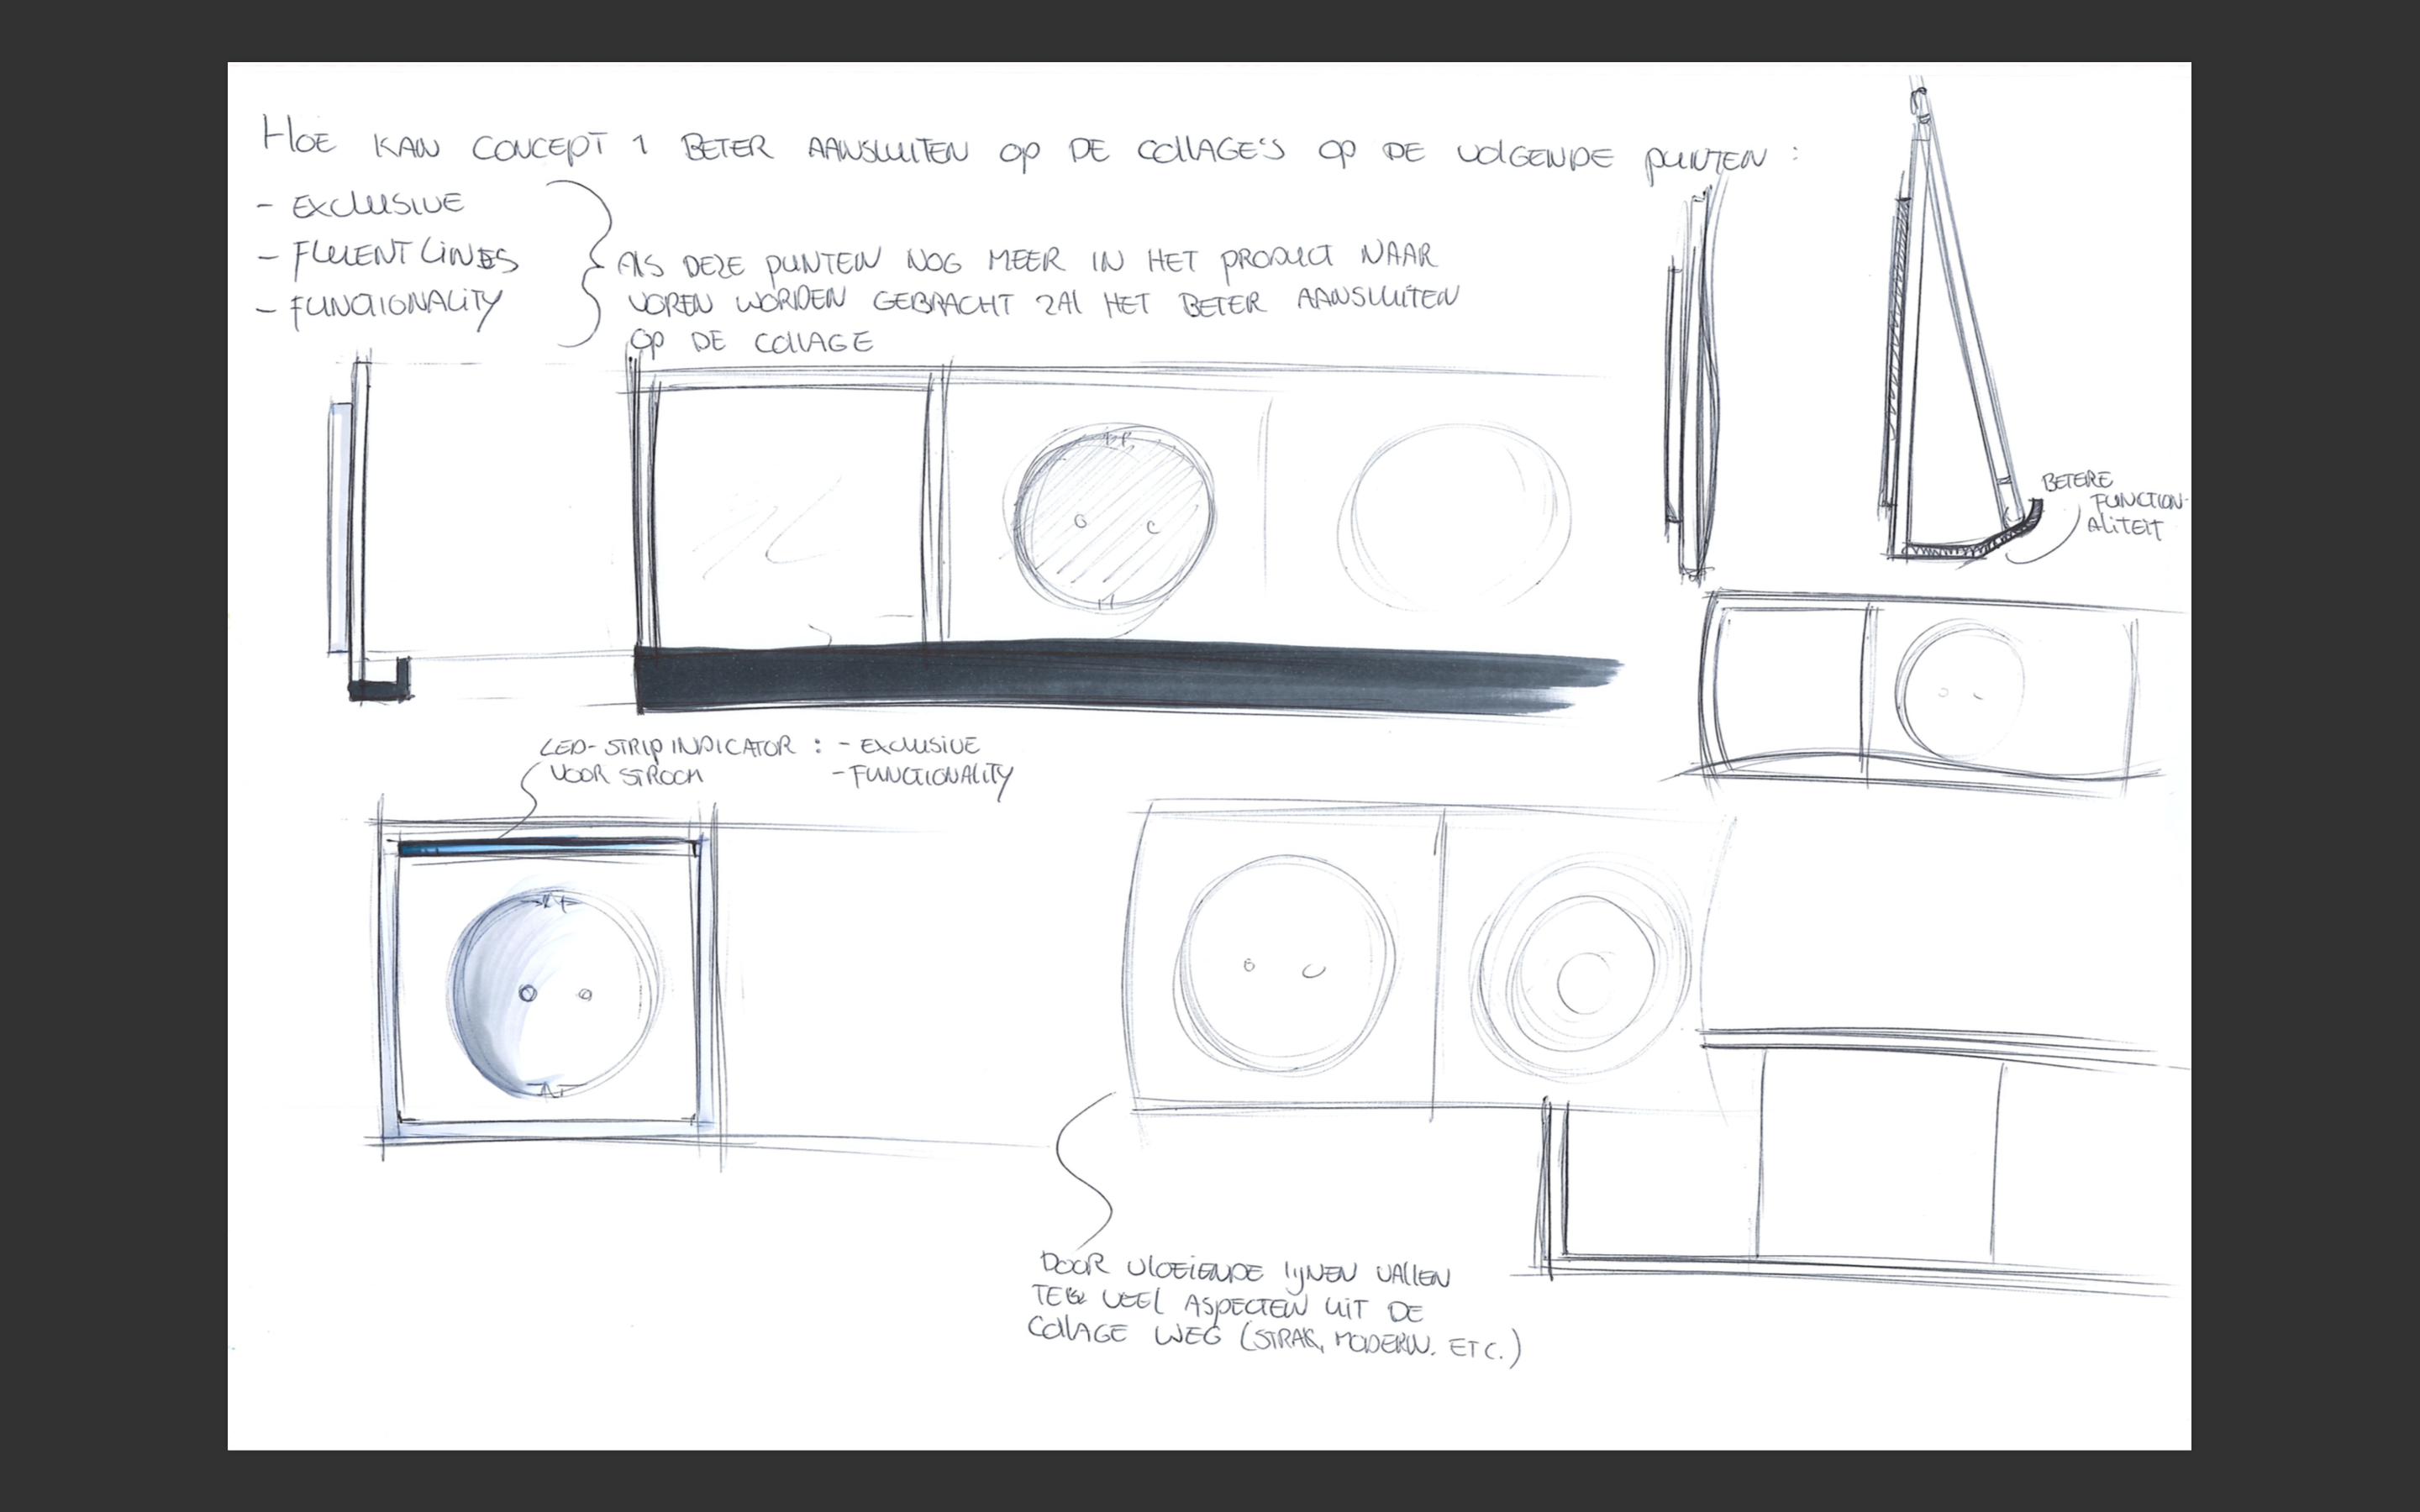 HOE KAN CONCEPT 1 BETER AANSLUITEN OP DE COLLAGE'S OP DE VOLGENDE PUNTEN :
- EXCLUSIVE
- FLUENT LINES
- FUNCTIONALITY
ALS DEZE PUNTEN NOG MEER IN HET PRODUCT NAAR
VOREN WORDEN GEBRACHT ZAL HET BETER AANSLUITEN
OP DE COLLAGE
BETERE
FUNCTION-
ALITEIT
LED-STRIP INDICATOR : - EXCLUSIVE
VOOR STROOM - FUNCTIONALITY
DOOR VLOEIENDE LIJNEN VALLEN
TE VEEL ASPECTEN UIT DE
COLLAGE WEG (STRAK, MODERN. ETC.)